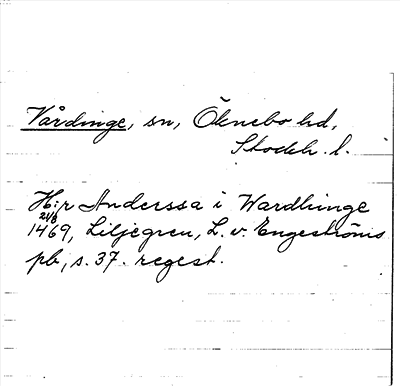 Vårdinge, sn, Öknebo hd,
Stockh. l.
H:r Anderssa i Wardhinge
21/8
1469, Liljegren, L. v. Engeströms
pb, s. 37. regest.